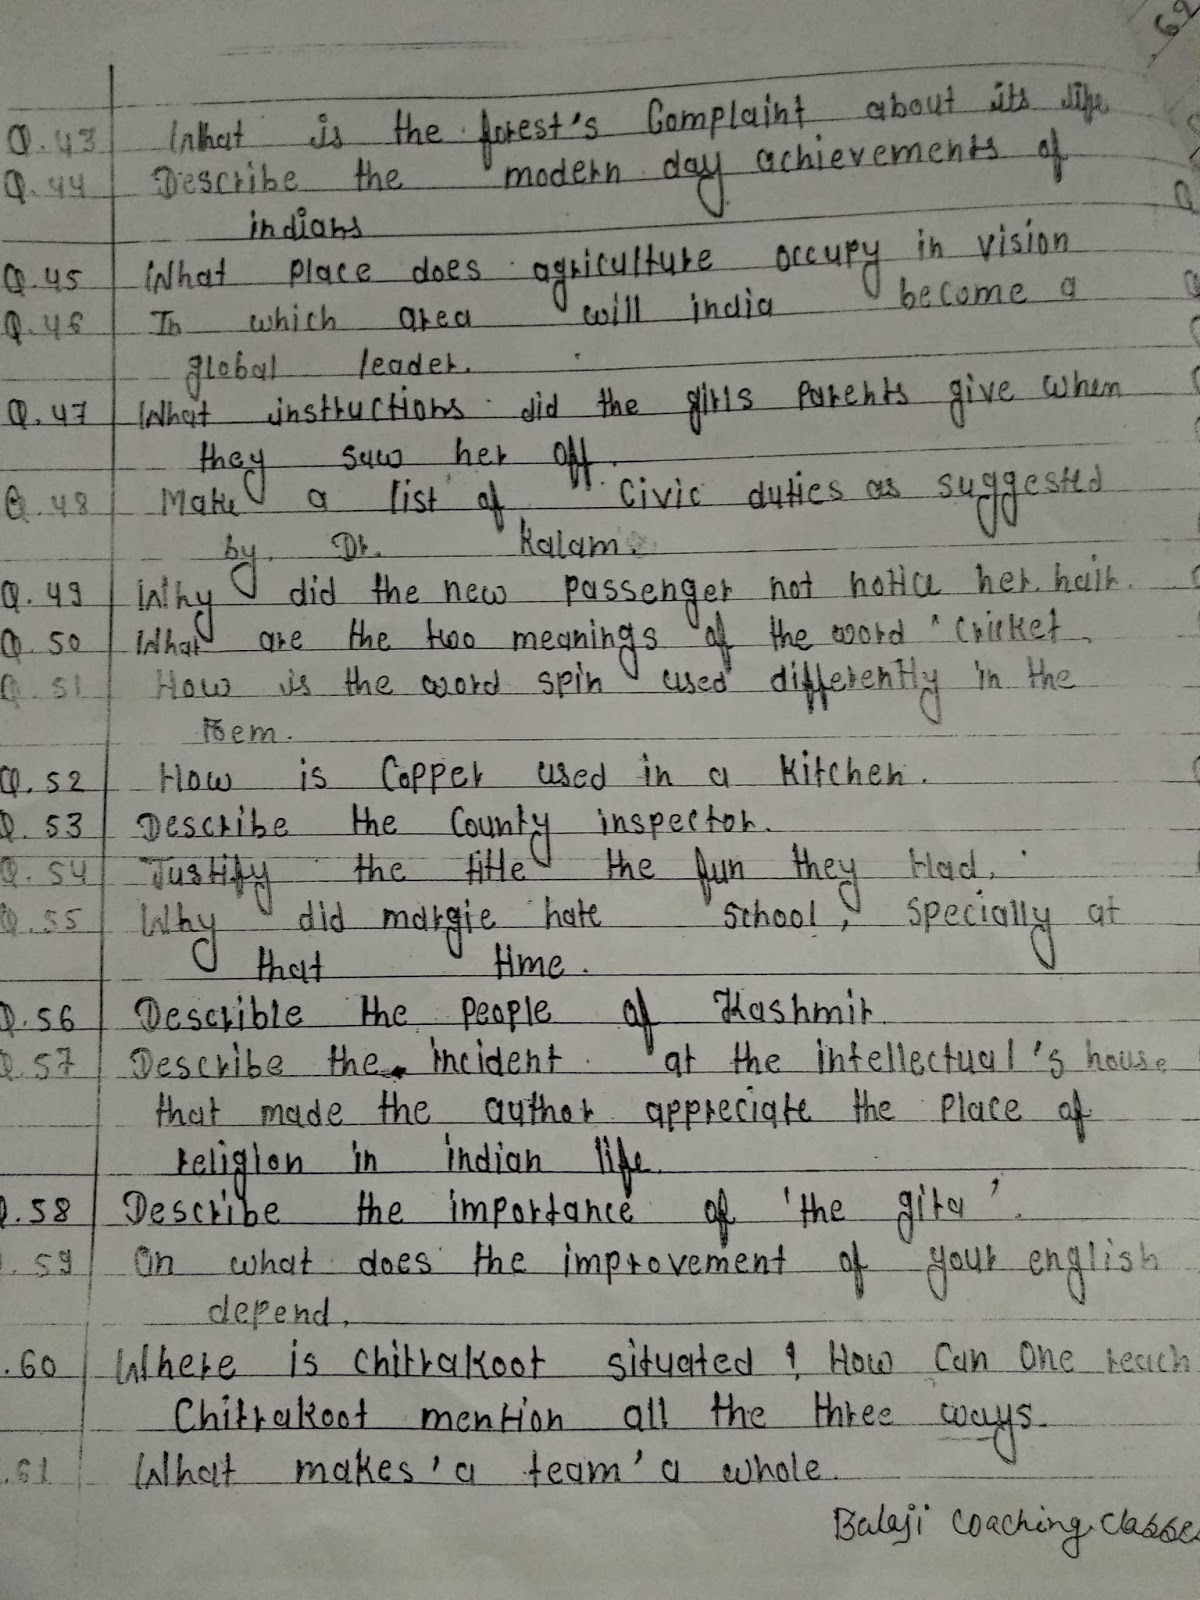 62
Q.43 What is the forest's Complaint about its life
Q.44 Describe the modern day achievements of
indians
Q.45 What Place does agriculture occupy in vision
Q.46 In which area will india become a
global leader.
Q.47 What instructions did the girls Parents give when
they saw her off.
Q.48 Make a list of Civic duties as suggested
by Dr. Kalam.
Q.49 Why did the new passenger not notice her hair.
Q.50 What are the two meanings of the word 'Cricket.
Q.51 How is the word spin used differently in the
Poem.
Q.52 How is Copper used in a Kitchen.
Q.53 Describe the County inspector.
Q.54 Justify the title the fun they Had.
Q.55 Why did margie hate School, Specially at
that time.
Q.56 Describle the people of Kashmir.
Q.57 Describe the incident at the intellectual's house
that made the author appreciate the Place of
religion in indian life.
Q.58 Describe the importance of 'the gita'.
.59 On what does the improvement of your english
depend.
.60 Where is Chitrakoot situated ? How Can One reach
Chitrakoot mention all the three ways.
.61 What makes 'a team' a whole.
Balaji Coaching Classes